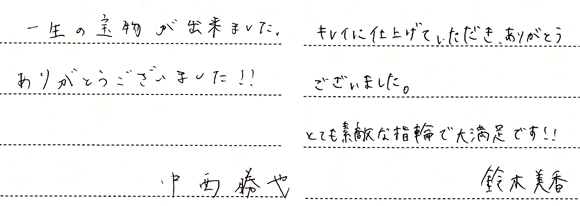 一生の宝物が出来ました。
ありがとうございました!!
中西勝也
キレイに仕上げていただき、ありがとう
ございました。
とても素敵な指輪で大満足です!!
鈴木美香